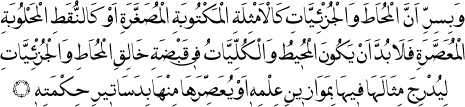 وَبِسِرِّ اَنَّ الْمُحَاطَ وَالْجُزْئِيَّاتِ كَالْاَمْثِلَةِ الْمَكْتُوبَةِ الْمُصَغَّرَةِ اَوْ كَالنُّقَطِ الْمَحْلُوبَةِ
الْمُعَصَّرَةِ فَلَابُدَّ اَنْ يَكُونَ الْمُحِيطُ وَالْكُلِّيَّاتُ فِى قَبْضَةِ خَالِقِ الْمُحَاطِ وَالْجُزْئِيَّاتِ
لِيُدْرِجَ مِثَالَهَا فِيهَا بِمَوَازِينِ عِلْمِهِ اَوْ يُعَصِّرَهَا مِنْهَا بِدَسَاتِيرِ حِكْمَتِهِ